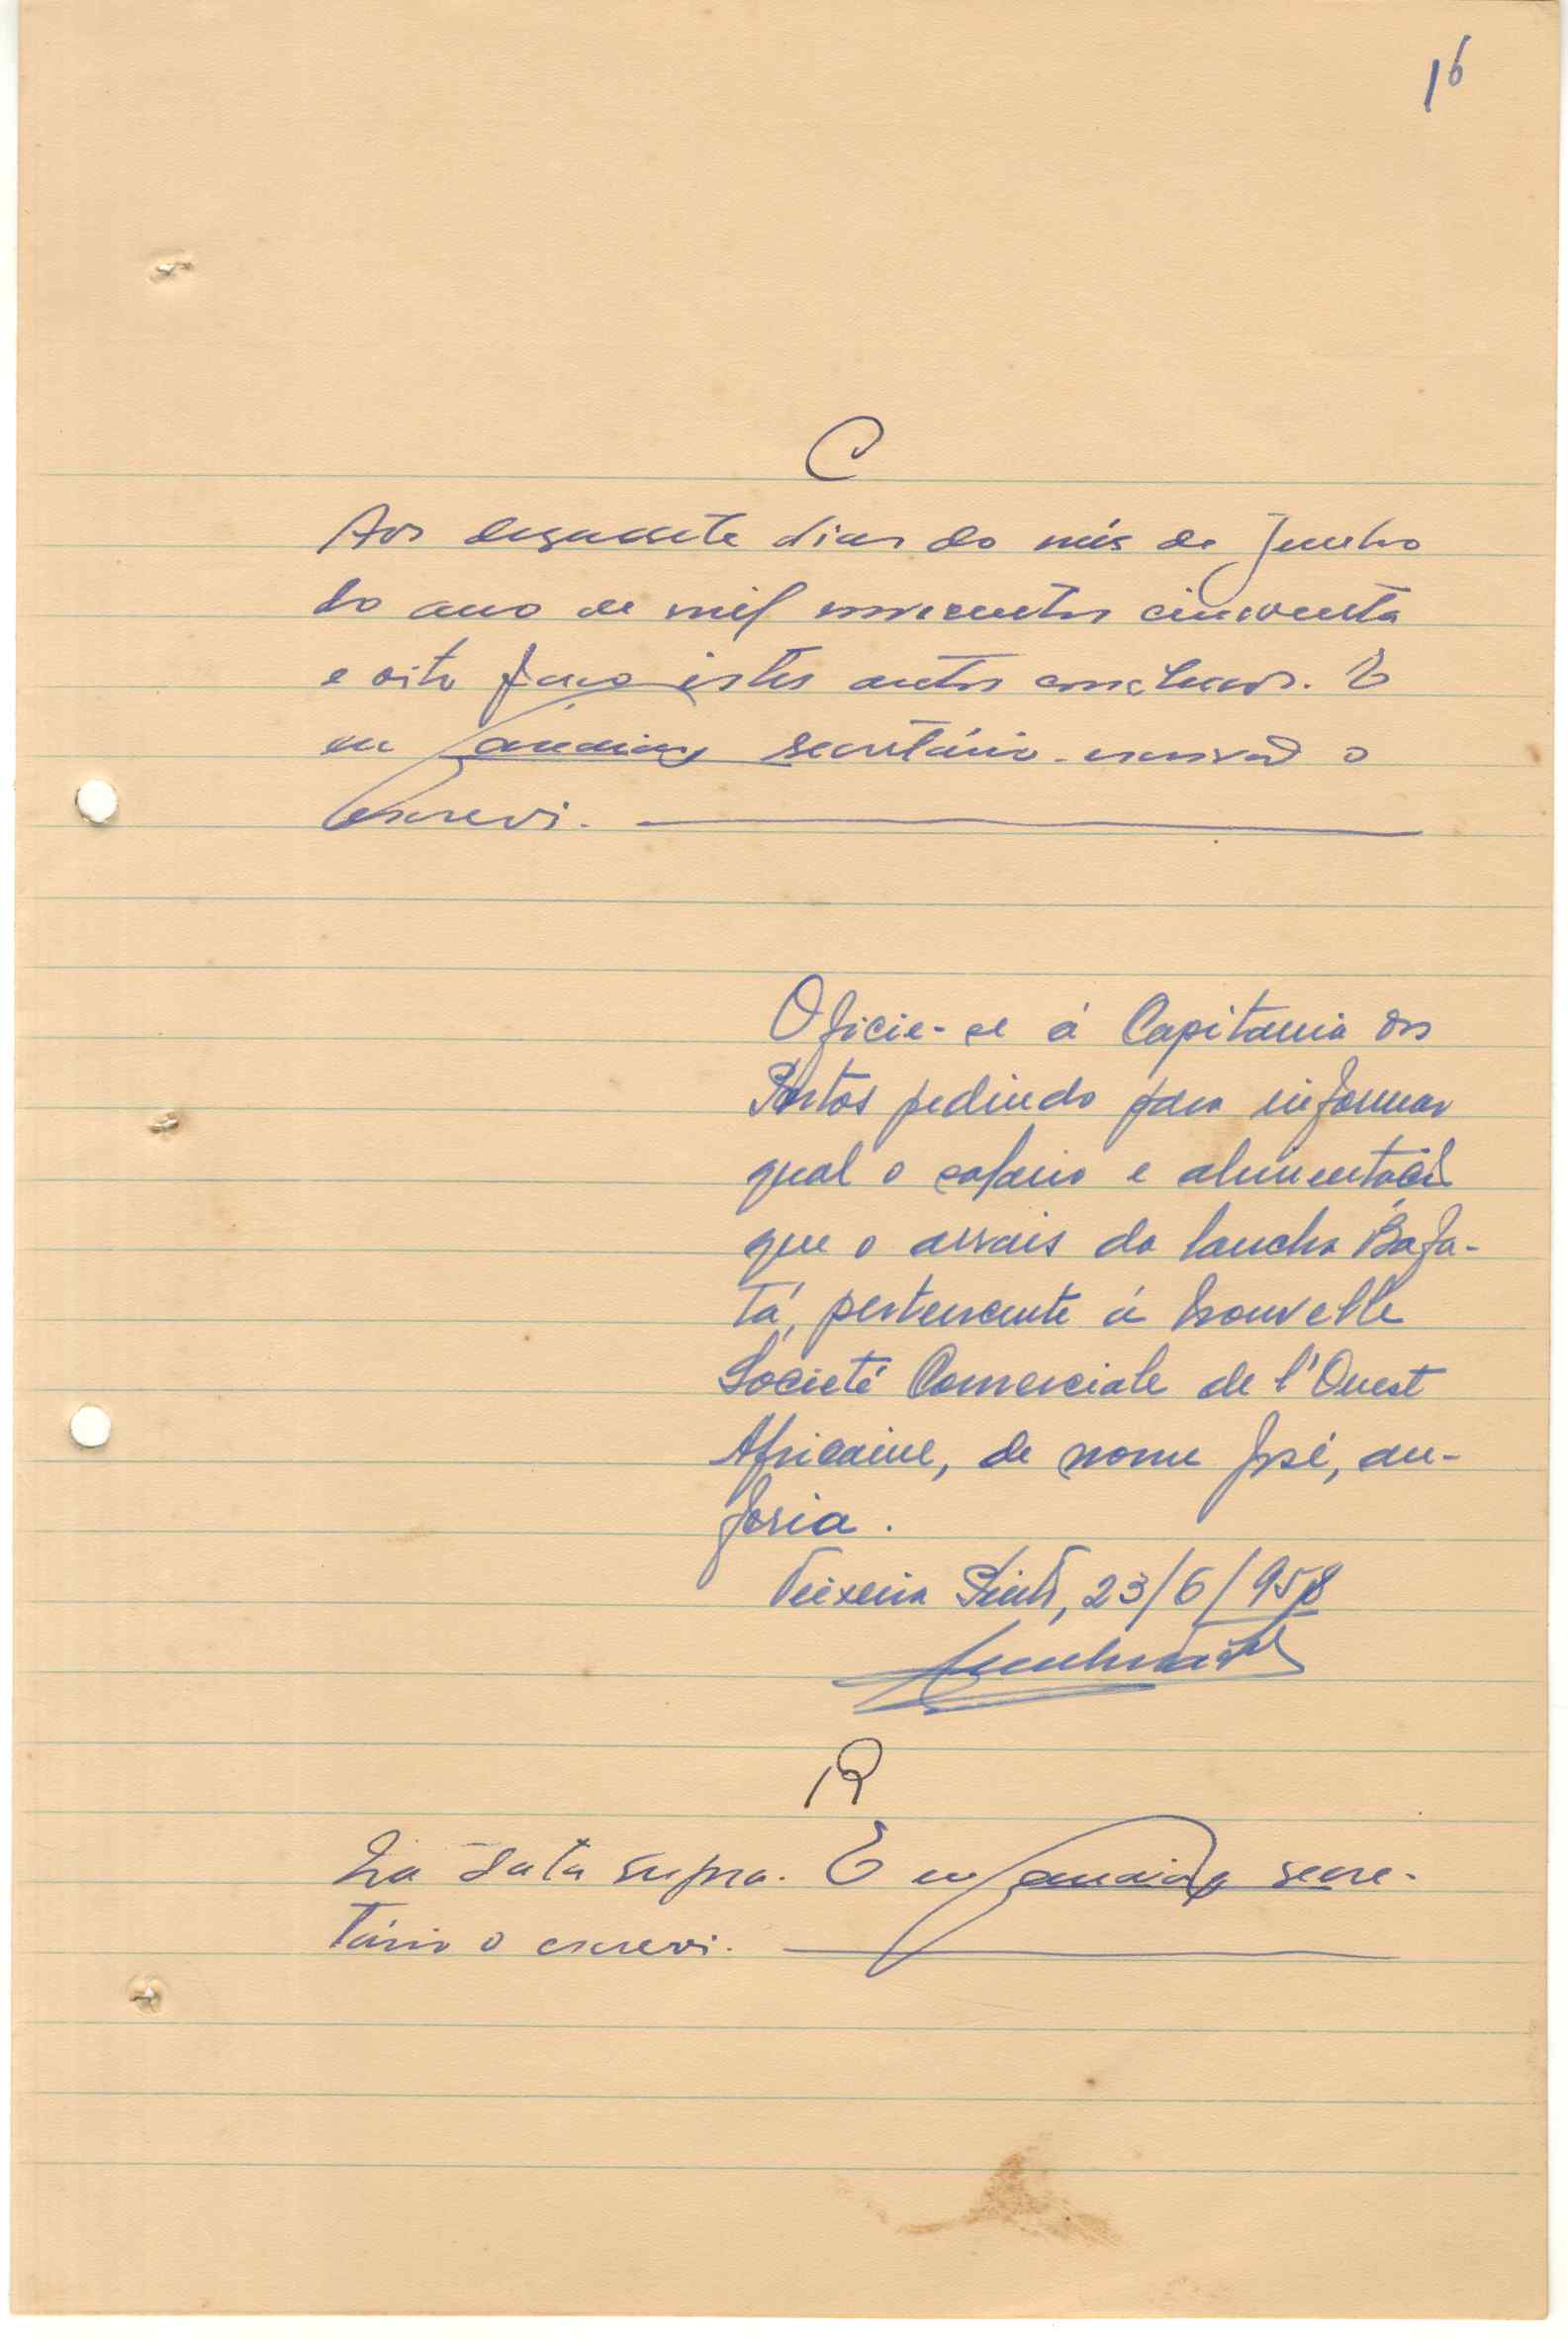 16
C
Aos dezassete dias do mês de Junho
do ano de mil novecentos cincoenta
e oito faço êstes autos conclusos. E
eu secretário-escrivão o
escrevi.
Oficie-se à Capitania dos
Portos pedindo para informar
qual o salário e alimentação
que o arrais da lancha Bafa-
tá, pertencente à Nouvelle
Societé Comerciale de l'Ouest
Africaine, de nome José, au-
feria.
Teixeira Pinto, 23/6/958
R
Na data supra. E eu secre-
tário o escrevi.